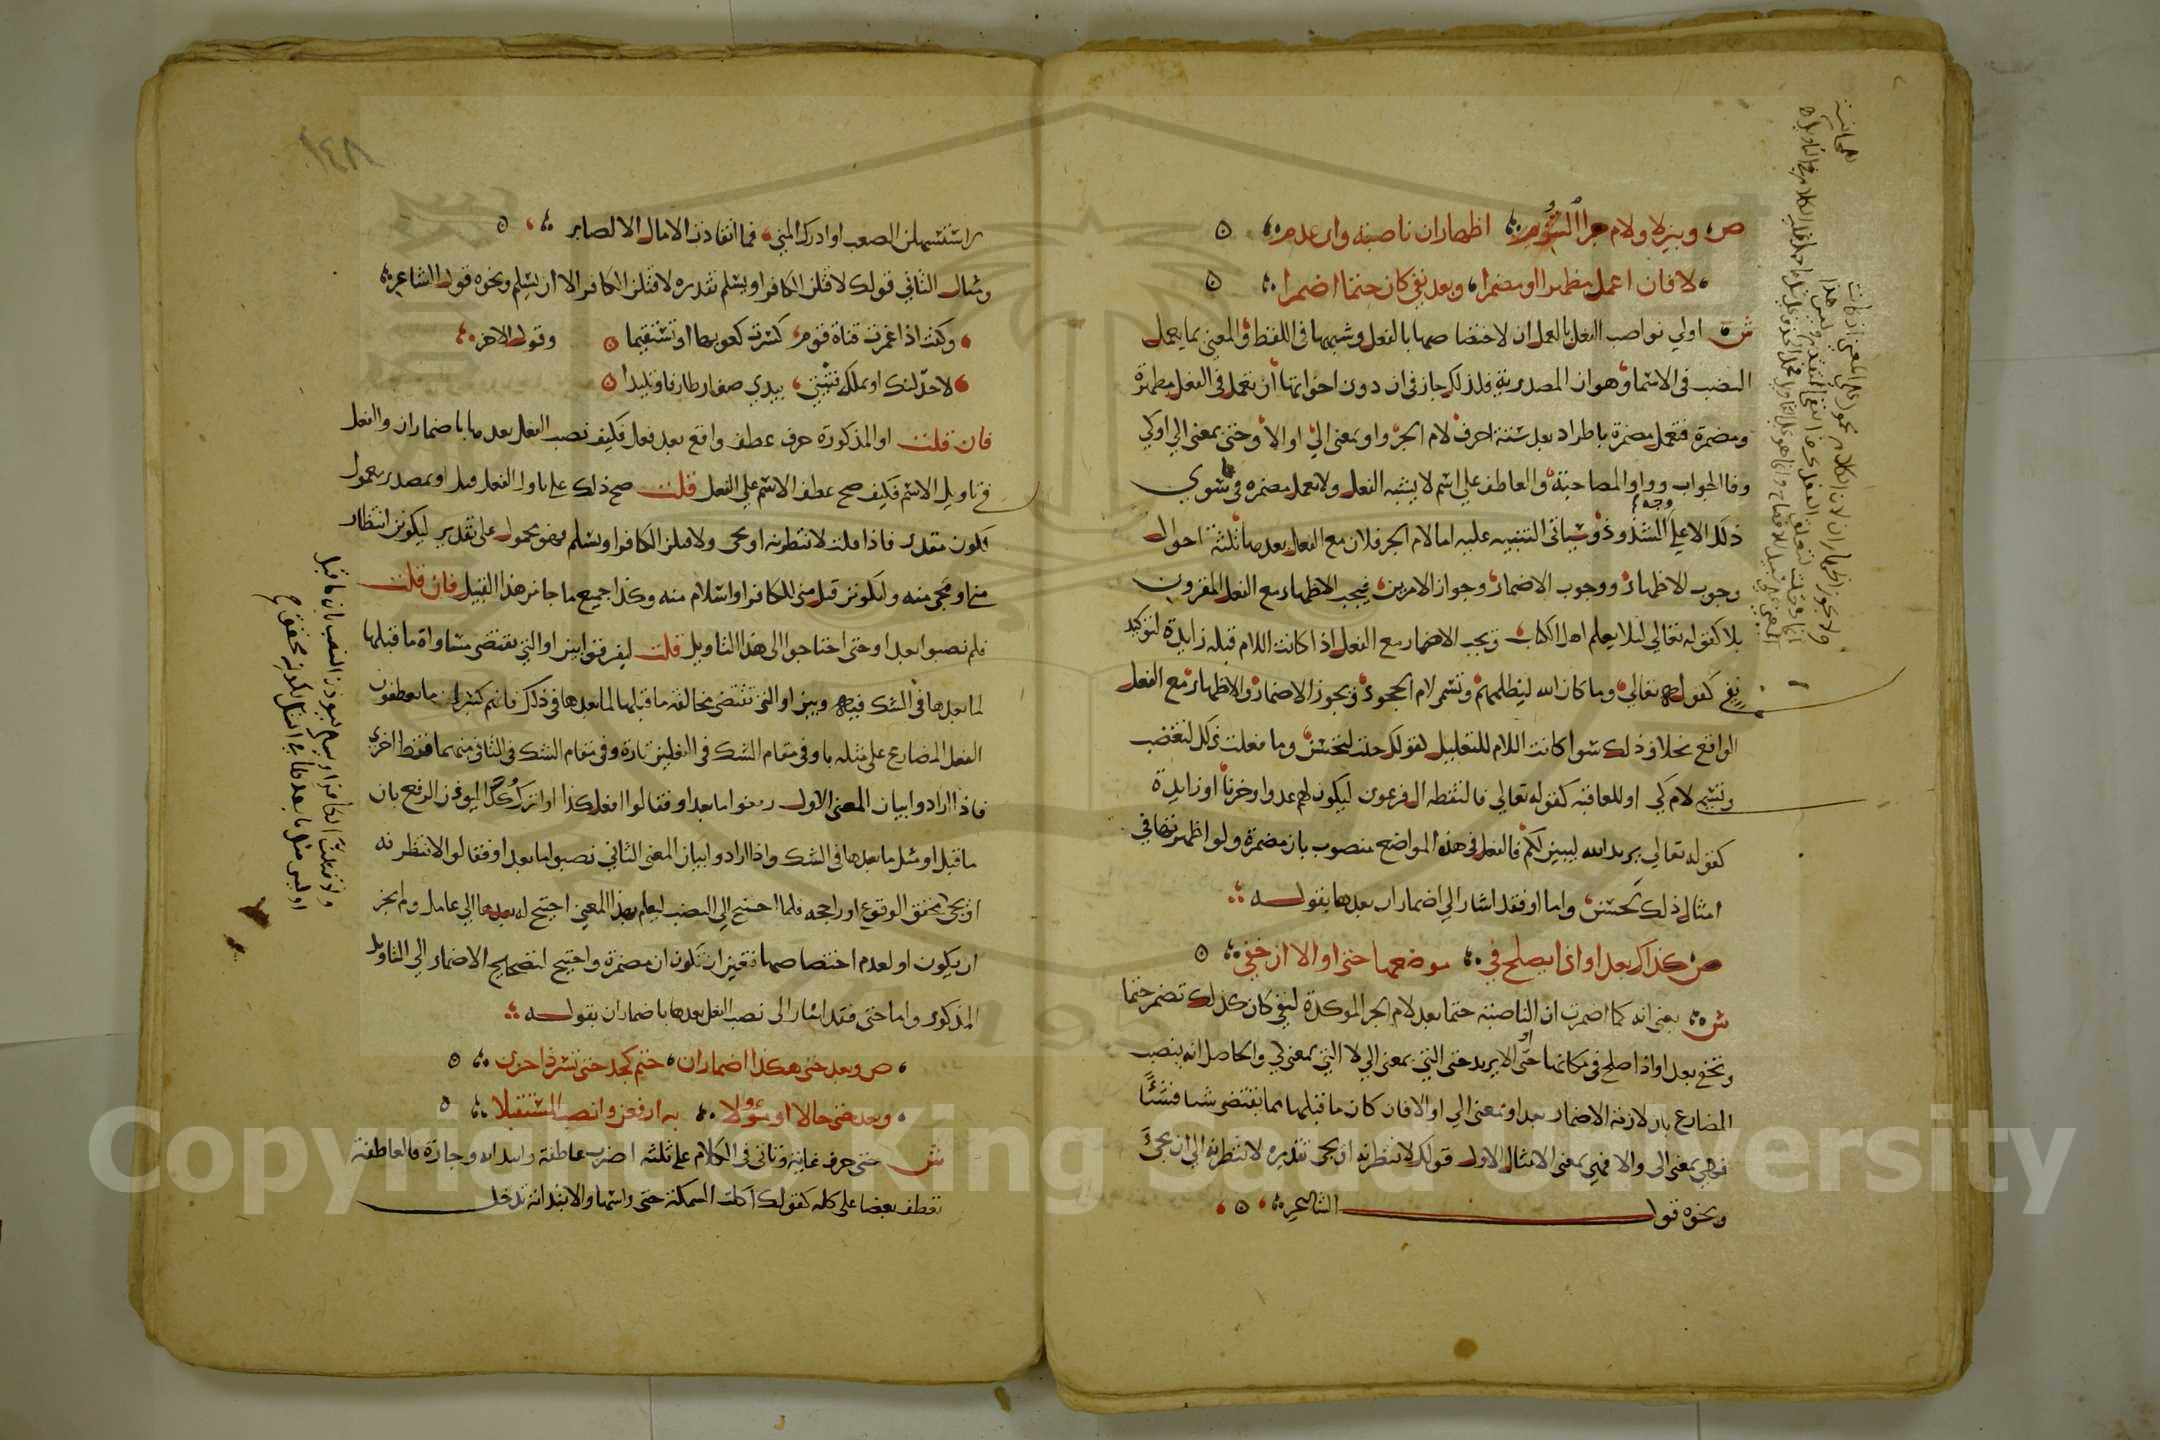 ص وبين لا ولام جر التزم اظهار ان ناصبة وان عدم
لا فان اعمل مظهرا او مضمرا وبعد نفي كان حتما اضمرا
ش اولي نواصب الفعل بالعمل ان لاختصاصها بالفعل وشبهها في اللفظ والمعني بما يعمل
النصب في الاسما وهو ان المصدرية فلذلك جاز في ان دون اخواتها ان تعمل في الفعل مظهرة
ومضمرة فتعمل مضمرة باطراد بعد ستة احرف لام الجر واو بمعني الي او الا وحتي بمعني الي او كي
وفا الجواب وواو المصاحبة والعاطف علي اسم لا يشبه الفعل ولا تعمل مضمرة في سوي
ذلك الا علي وجه الشذوذ وسياتي التنبيه عليه اما لام الجر فلان مع الفعل بعدها ثلثة احوال
وجوب الاظهار ووجوب الاضمار وجواز الامرين فيجب الاظهار مع الفعل المقرون
بلا كقوله تعالي لئلا يعلم اهل الكتاب ويجب الاضمار مع الفعل اذا كانت اللام قبله زايدة لتوكيد
نفي كقوله تعالي وما كان الله ليظلمهم وتسمي لام الجحود ويجوز الاضمار والاظهار مع الفعل
الواقع بخلاف ذلك سوا كانت اللام للتعليل كقولك جئت لتحسن وما فعلت ذلك لتغضب
وتسمي لام كي او للعاقبة كقوله تعالي فالتقطه ال فرعون ليكون لهم عدوا وحزنا او زايدة
كقوله تعالي يريد الله ليبين لكم فالفعل في هذه المواضع منصوب بان مضمرة ولو اظهرتها في
امثال ذلك لحسن واما او فقد اشار الي اضمار ان بعدها بقوله
ص كذاك بعد او اذا يصلح في موضعها حتي او الا ان خفي
ش يعني انه كما اضمرت ان الناصبة حتما بعد لام الجر الموكدة لنفي كان كذلك تضمر حتما
وتخفي بعد او اذا صلح في مكانها حتي او الا يريد حتي التي بمعني الي لا التي بمعني كي والحاصل انه ينصب
المضارع بان لازمة الاضمار بعد او بمعني الي او الا فان كان ما قبلها مما ينقضي شيا فشيا
فهي بمعني الي والا فهي بمعني الا مثال الاول قولك لانتظرنه او يجي تقديره لانتظرنه الي ان يجئ
ونحوه قول الشاعر
لاستسهلن الصعب او ادرك المني فما انقادت الامال الا لصابر
ومثال الثاني قولك لاقتلن الكافر او يسلم تقديره لاقتلن الكافر الا ان يسلم ونحوه قول الشاعر
وكنت اذا غمزت قناة قوم كسرت كعوبها او تستقيما وقول الاخر
لاجدلنك او تملك فتيتي بيدي صغار طارفا وتليدا
فان قلت او المذكورة حرف عطف واقع بعد فعل فكيف نصب الفعل بعدها باضمار ان والفعل
في تاويل الاسم فكيف صح عطف الاسم علي الفعل قلت صح ذلك علي تاويل الفعل قبل او بمصدر معمول
لكون مقدر فاذا قلت لانتظرنه او يجي ولاقتلن الكافر او يسلم فهو محمول علي تقدير ليكونن انتظار
مني او مجي منه وليكونن قتل مني للكافر او اسلام منه وكذا جميع ما جا من هذا القبيل فان قلت
فلم نصبوا بعد او حتي احتاجوا الي هذا التاويل قلت ليفرقوا بين او التي تقتضي مساواة ما قبلها
لما بعدها في الشك فيه وبين او التي تقتضي مخالفة ما قبلها لما بعدها في ذلك فانهم كثيرا ما يعطفون
الفعل المضارع علي مثله باو في مقام الشك في الفعلين تارة وفي مقام الشك في الثاني منهما فقط اخري
فاذا ارادوا بيان المعني الاول رفعوا ما بعد او فقالوا افعل كذا او اترك ليوذن الرفع بان
ما قبل او مثل ما بعدها في الشك واذا ارادوا بيان المعني الثاني نصبوا ما بعد او فقالوا لانتظرنه
او يجي محقق الوقوع او راجحه فلما احتيج الي النصب ليعلم بهذا المعني احتيج له بعدها الي عامل ولم يجز
ان يكون او لعدم اختصاصها فتعين ان تكون ان مضمرة واحتيج لتصحيح الاضمار الي التاويل
المذكور واما حتي فقد اشار الي نصب الفعل بعدها باضمار ان بقوله
ص وبعد حتي هكذا اضمار ان حتم كجد حتي تسر ذا حزن
وبعد حتي حالا او مؤولا به ارفعن وانصب المستقبلا
ش حتي حرف غاية وتاتي في الكلام علي ثلثة اضرب عاطفة وابتدائية وجارة فالعاطفة
تعطف بعضا علي كله كقولك اكلت السمكة حتي راسها والابتدائية تدخل
١٤٨
Copyright © King Saud University
1957